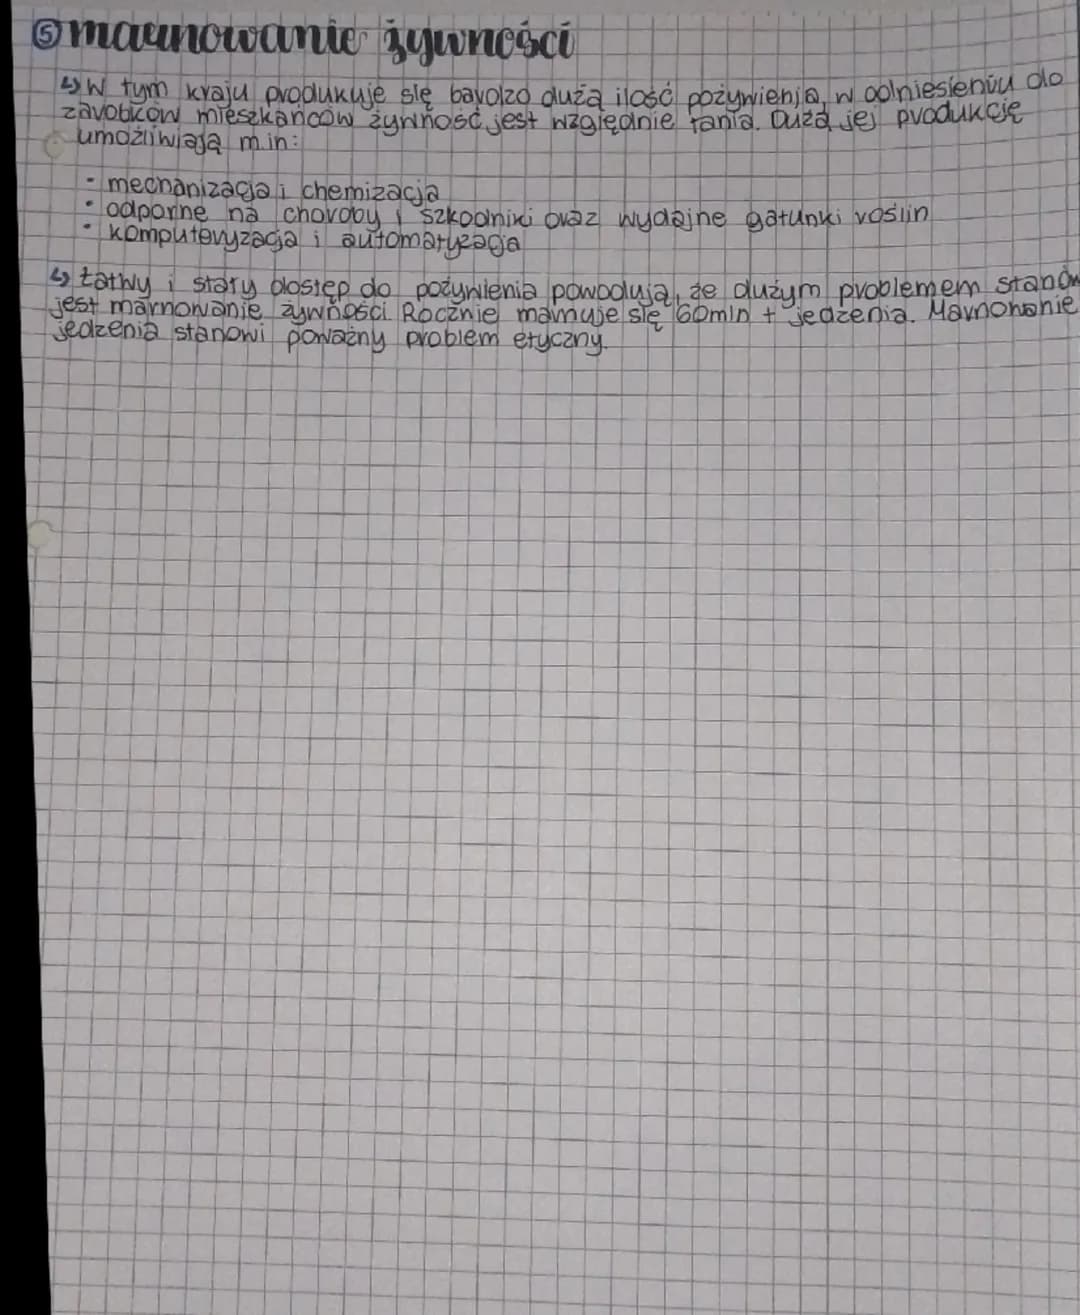 ⑤ marnowanie żywności
↳ W tym kraju produkuje się bardzo dużą ilość pożywienia, w odniesieniu do
zarobków mieszkańców żywność jest względnie tania. Dużą jej produkcję
umożliwiają m.in:
- mechanizacja i chemizacja
• odporne na choroby i szkodniki oraz wydajne gatunki roślin
• komputeryzacja i automatyzacja
↳ Łatwy i stały dostęp do pożywienia powodują, że dużym problemem stanów
jest marnowanie żywności. Rocznie marnuje się 60mln t jedzenia. Marnowanie
jedzenia stanowi poważny problem etyczny.